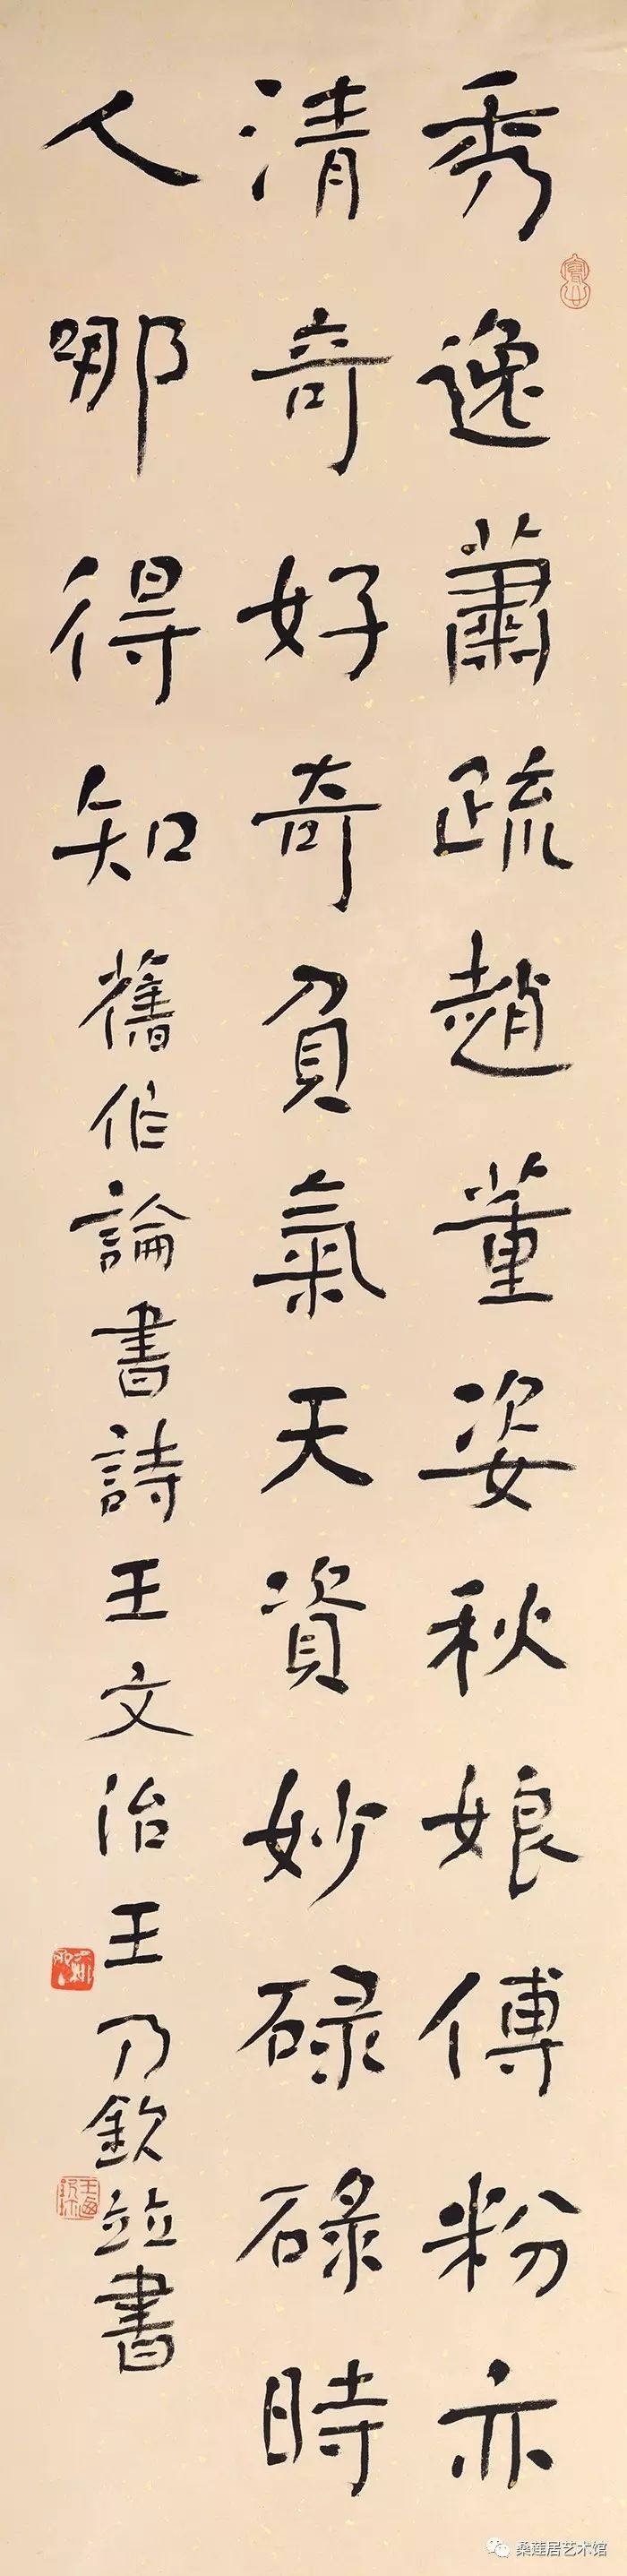 秀逸蕭疏趙董姿秋娘傅粉亦
清奇好奇負氣天資妙碌碌時
人哪得知
舊作論書詩王文治王乃欽竝書
桑莲居艺术馆